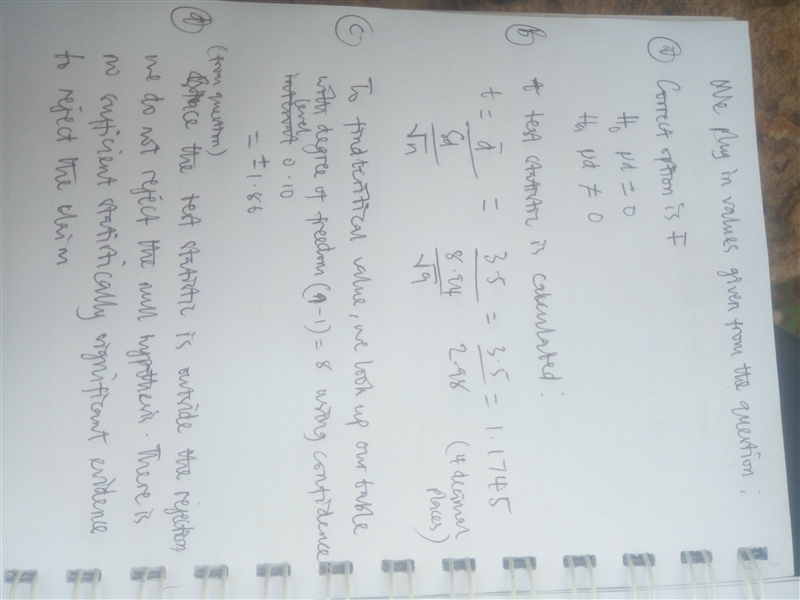 We plug in values given from the question:
(a) Correct option is F
H₀ μd = 0
Hₐ μd ≠ 0
(b) t test statistic is calculated:
t = d̄ = 3.5 = 3.5 = 1.1745
Sd 8.94 2.98 (4 decimal places)
√n √9
(c) To find critical value, we look up our table
with degree of freedom (9-1) = 8 using confidence
level 0.10
= ±1.86
(d) (from question)
Since the test statistic is outside the rejection,
we do not reject the null hypothesis. There is
no sufficient statistically significant evidence
to reject the claim